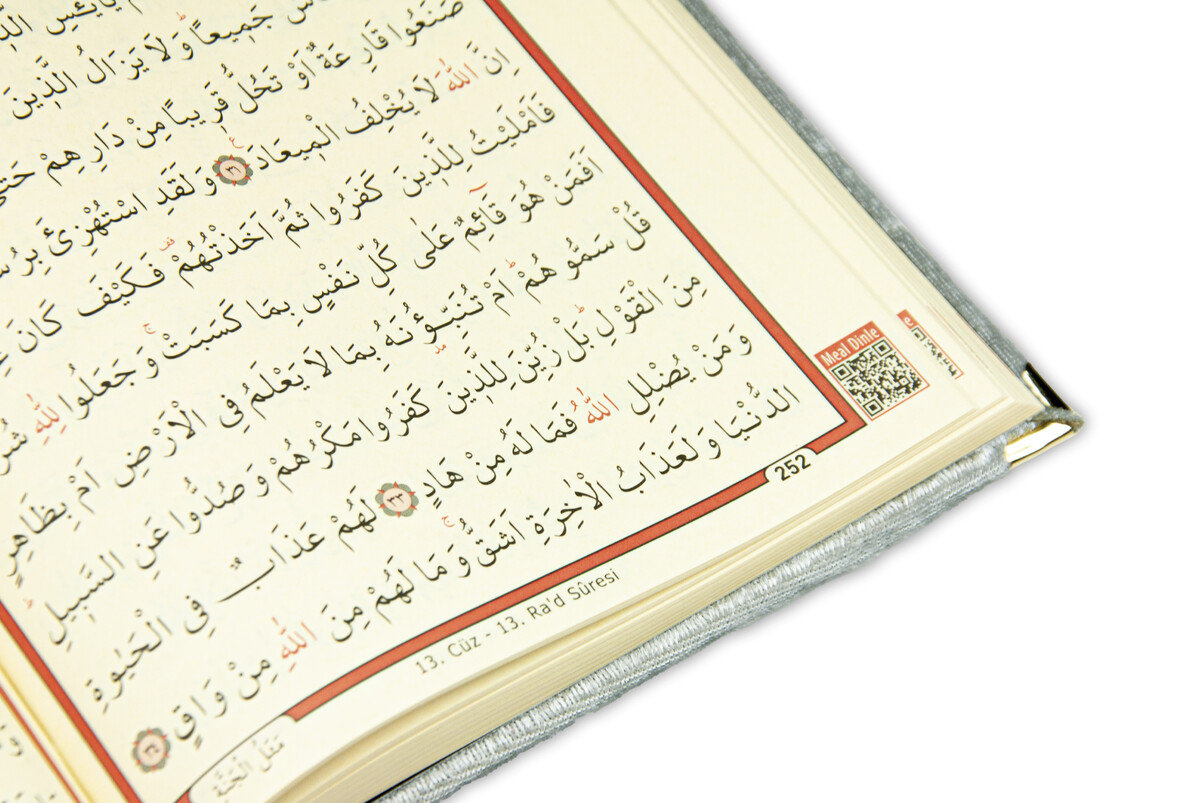 جَمٖيعاًۜ وَلَا يَزَالُ الَّذٖينَ
صَنَعُوا قَارِعَةٌ اَوْ تَحُلُّ قَرٖيباً مِنْ دَارِهِمْ
اِنَّ اللّٰهَ لَا يُخْلِفُ الْمٖيعَادَ ﴿٣١﴾ وَلَقَدِ اسْتُهْزِئَ
فَاَمْلَيْتُ لِلَّذٖينَ كَفَرُوا ثُمَّ اَخَذْتُهُمْ فَكَيْفَ كَانَ
اَفَمَنْ هُوَ قَٓائِمٌ عَلٰى كُلِّ نَفْسٍ بِمَا كَسَبَتْۚ وَجَعَلُوا لِلّٰهِ
قُلْ سَمُّوهُمْۜ اَمْ تُنَبِّؤُ۫نَهُ بِمَا لَا يَعْلَمُ فِي الْاَرْضِ اَمْ بِظَاهِرٍ
مِنَ الْقَوْلِۜ بَلْ زُيِّنَ لِلَّذٖينَ كَفَرُوا مَكْرُهُمْ وَصُدُّوا عَنِ السَّبٖيلِۜ
وَمَنْ يُضْلِلِ اللّٰهُ فَمَا لَهُ مِنْ هَادٍ ﴿٣٣﴾ لَهُمْ عَذَابٌ فِي الْحَيٰوةِ
الدُّنْيَا وَلَعَذَابُ الْاٰخِرَةِ اَشَقُّۚ وَمَا لَهُمْ مِنَ اللّٰهِ مِنْ وَاقٍ ﴿٣٤﴾
مَثَلُ الْجَنَّةِ
252
13. Cüz - 13. Ra'd Sûresi
Meal Dinle